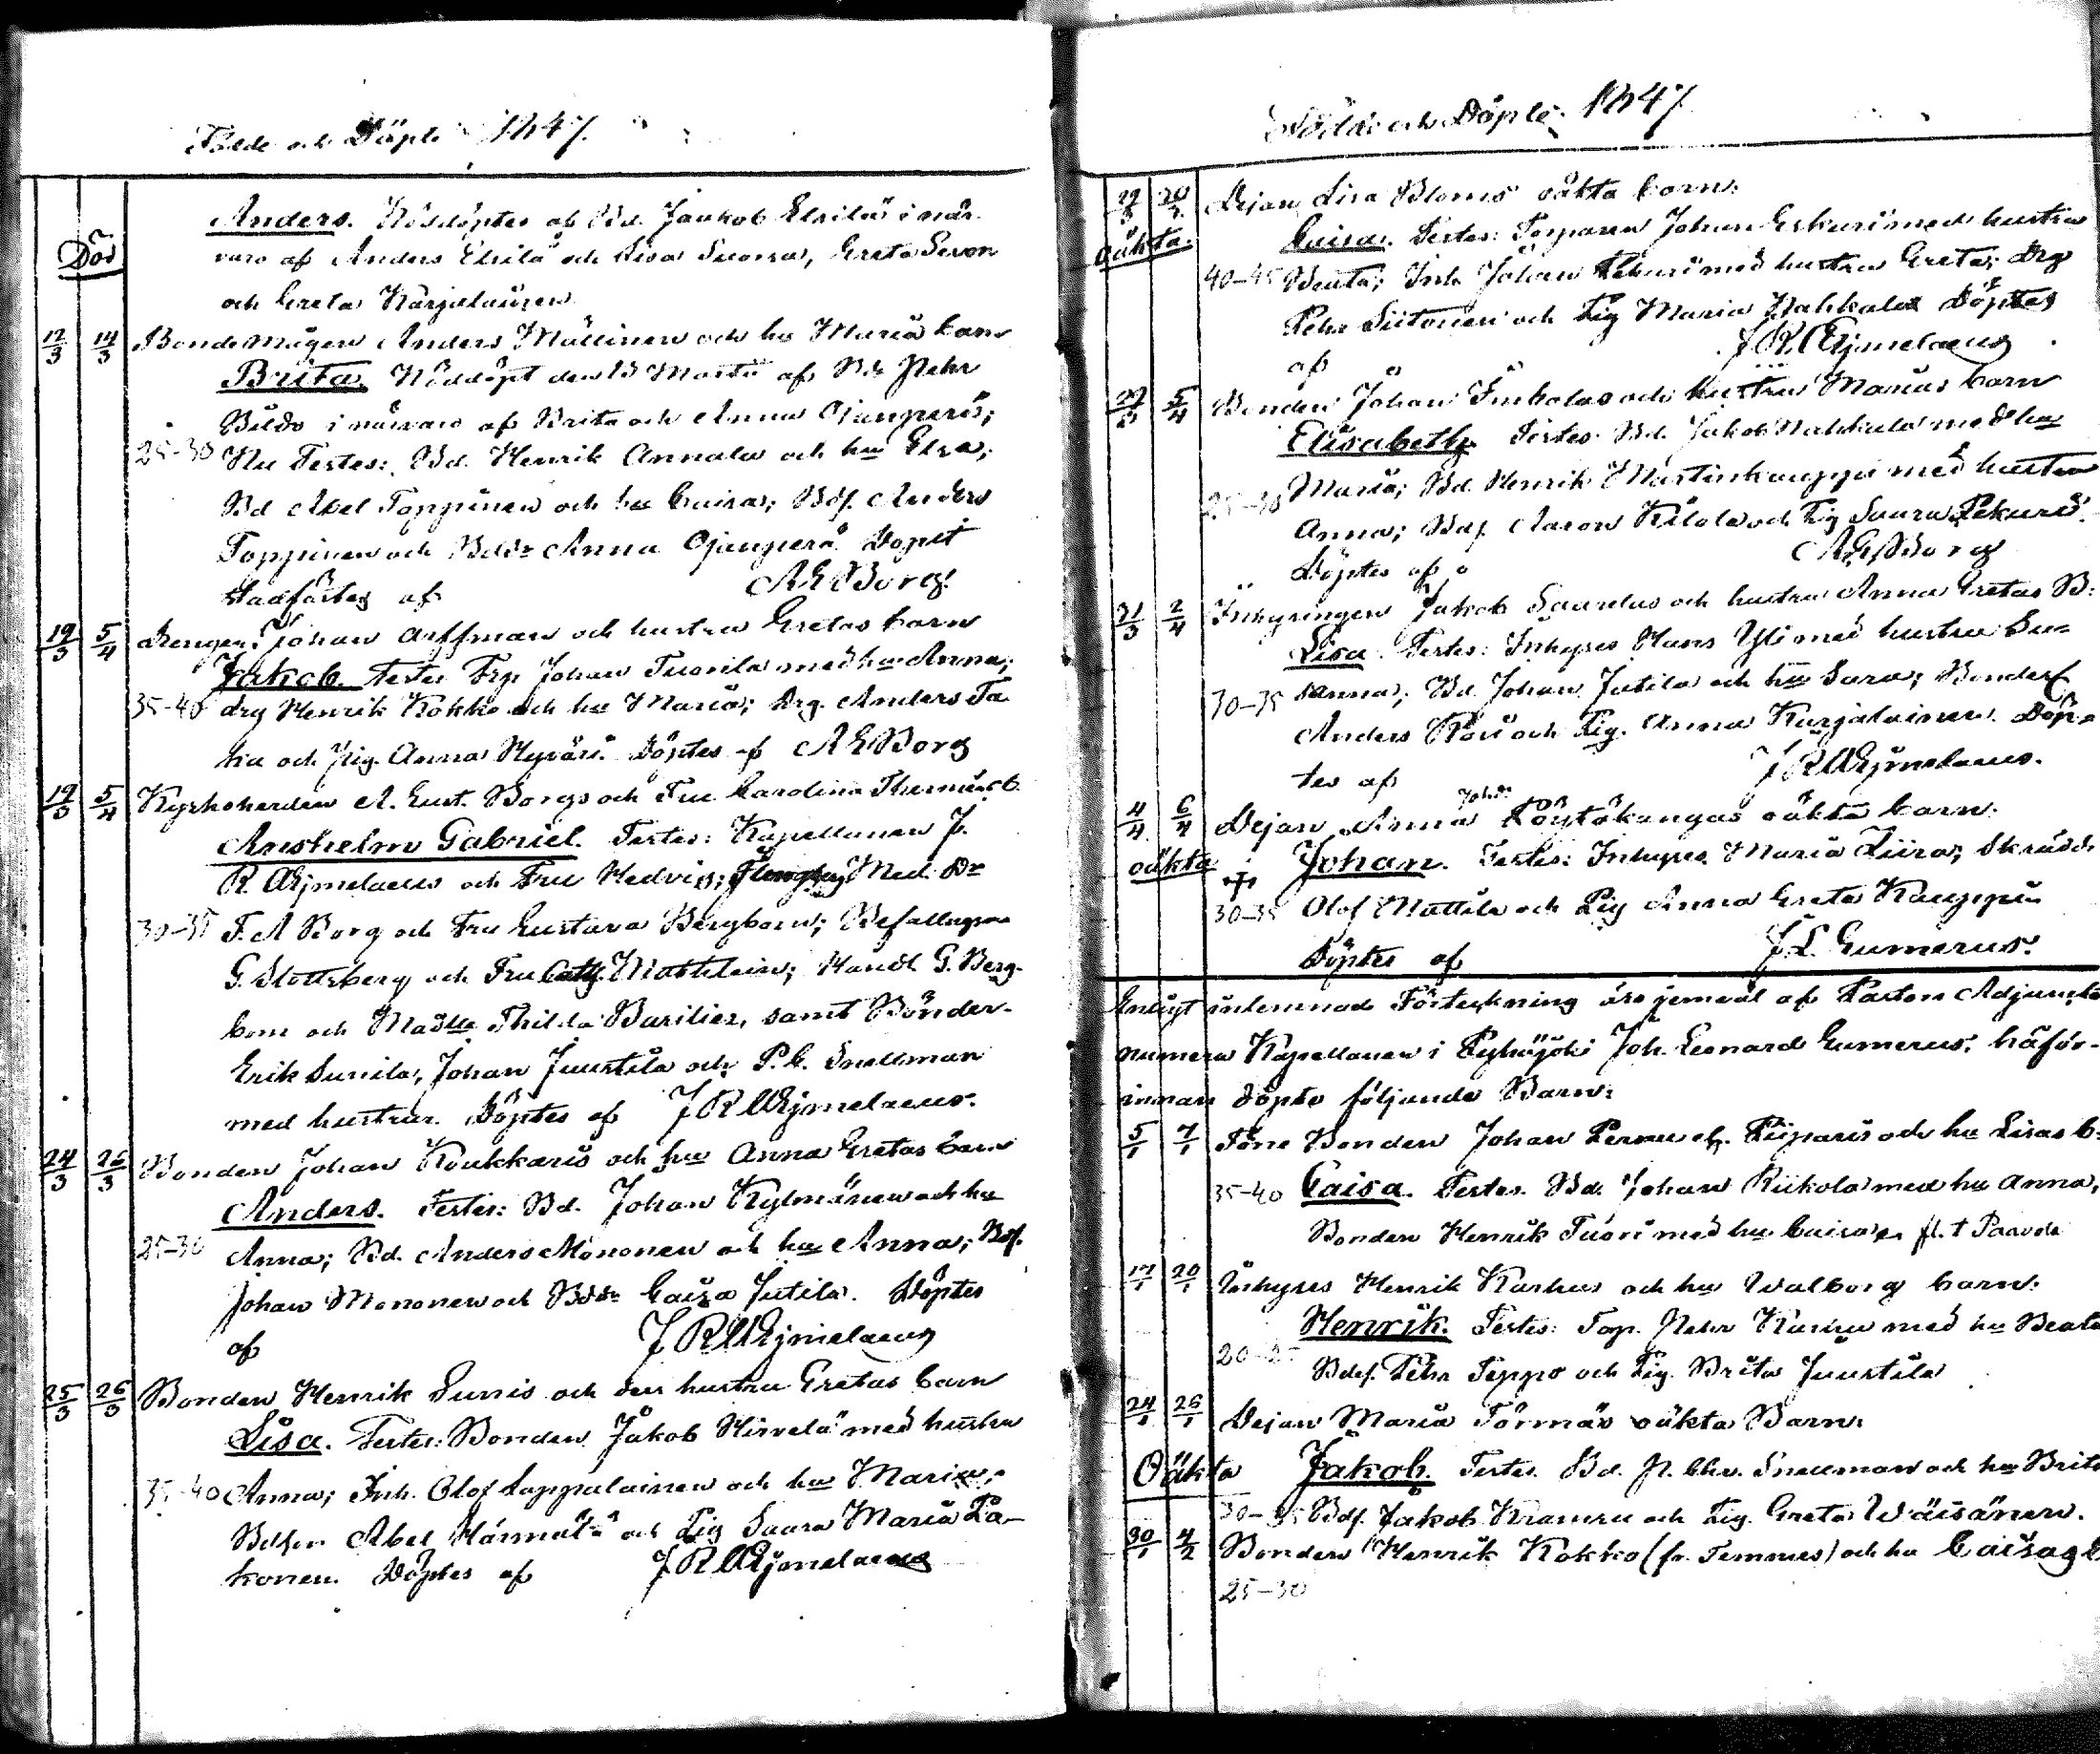 Födde och Döpte 1847.
Anders. Nöddöptes af Bd. Jaakob Elsilä i när-
Död
varo af Anders Elsilä och Lisa Suorsa, Greta Seven
och Greta Karjalainen
12/3 14/3 Bondemågen Anders Mällinen och hu Maria barn
Brita. Nöddöpt den 13 Martii af Bd. Pehr
i närvaro af Brita och Anna Ojanperä;
25-30 Nu Testes: Bd. Henrik Annala och hu Elsa;
Bd Abel Toppinen och hu Caisa; Bdf. Anders
Toppinen och Bddr Anna Ojanperä. Dopet
stadfästes af AEBorg.
19/3 5/4 Drengen Johan Arffman och hustru Gretas barn
Jakob. Testes Trp Johan Tuorila med hu Anna;
35-40 drg Henrik Kokko och hu Maria; Drg. Anders Ta
ka och Pig. Anna Hyväri. Döptes af AEBorg
19/3 5/4 Kyrkoherden A. Gust. Borgs och Fru Carolina b.
Anshelm Gabriel. Testes: Kapellanen J.
R. Ejmelaeus och Fru Hedvig; Med. Dr
30-35 F. A Borg och Fru Gustava Bergbom;
G. Slottsberg och Fru Cath. Mathlein; Handl G. Berg-
bom och Madlle Thilda Basilier, samt Bönder-
Erik Sunila, Johan Juustila och P. C. Snellman
med hustrur. Döptes af J R Ejmelaeus.
24/3 26/3 Bonden Johan Koukkaris och hu Anna Gretas barn
Anders. Testes: Bd. Johan Kylmänen och hu
25-30 Anna; Bd. Anders Mononen och hu Anna; Bdf.
Johan Mononen och Bddr Caisa Jutila. Döptes
af J R Ejmelaeus
25/3 26/3 Bonden Henrik Sunis och dess hustru Gretas barn
Lisa. Testes: Bonden Jakob Hirvelä med hustru
35-40 Anna; Inh. Olof Lappalainen och hu Maria;
Bdson Abel Härmälä och Pig Saara Maria Pa-
konen. Döptes af J R Ejmelaeus
Födde och Döpte 1847
27/3 28/3 Dejan Lisa Bloms oäkta barn:
oäkta.
Caisa. Testes: Torparen Johan Eskuri med hustru
40-45 Beata; Inh. Johan med hustru Greta; Drg
Pehr Siitonen och Pig Maria Nahkala Döptes
af J R Ejmelaeus
27/3 5/4 Bonden Johan Inkalas och hustru Marias barn
Elisabeth. Testes: Bd. Jakob Nahkala med hu
25-30 Maria; Bd. Henrik Martinkauppi med hustru
Anna; Bdf. Aaron Kilola och Pig Saara Pekuri.
Döptes af AEBorg
31/3 2/4 Inhysingen Jakob Saurelas och hustru Anna Gretas B:
Lisa. Testes: Inhyses Hans Yli med hustru Su-
30-35 sanna; Bd. Johan Jutila och hu Sara; Bondes.
Anders Kari och Pig. Anna Karjalainen. Döp-
tes af J R Ejmelaeus.
Johdr
4/4 6/4 Dejan Anna Pöytäkangas oäkta barn:
oäkta Johan. Testes: Inhyses Maria Liira; Skrädd.
30-35 Olof Mattila och Pig Anna Greta Kauppi
Döptes af J. L. Gumerus.
Enligt inlemnad Förteckning äro jemväl af Pastors Adjuncten
numera Kapellanen i Pyhäjoki Joh. Leonard Gumerus, häför-
innan döpte följande Barn:
5/1 7/1 Före Bonden Johan Pernu el. Piiparis och hu Lisas b:
35-40 Caisa. Testes. Bd. Johan Riikola med hu Anna,
Bonden Henrik Tuori med hu Caisa
17/1 20/1 Inhyses Henrik Karhus och hu Walborg barn:
Henrik. Testes: Torp. Pehr Karhu med hu Beata
20-25 Bdsf. Pehr Seppo och Pig. Brita Juustila
24/1 26/1 Dejan Maria Törmäs oäkta Barn:
Oäkta Jakob. Testes. Bd. P. Chr. Snellman och hu Brita
30-35 Bdf. Jakob Kramsu och Pig. Greta Wäisänen.
30/1 4/2 Bonden Henrik Kokko (fr. Temmes) och hu Caisas b
25-30